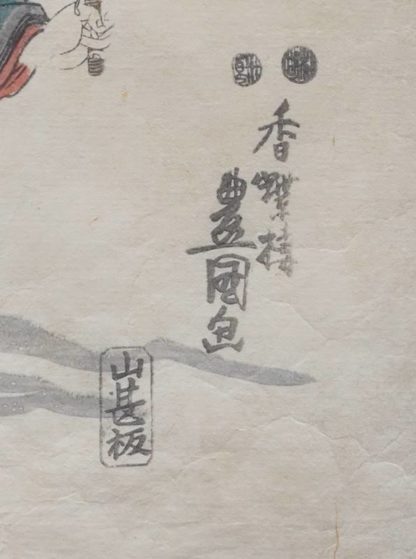 香蝶楼
豊国画
山甚板